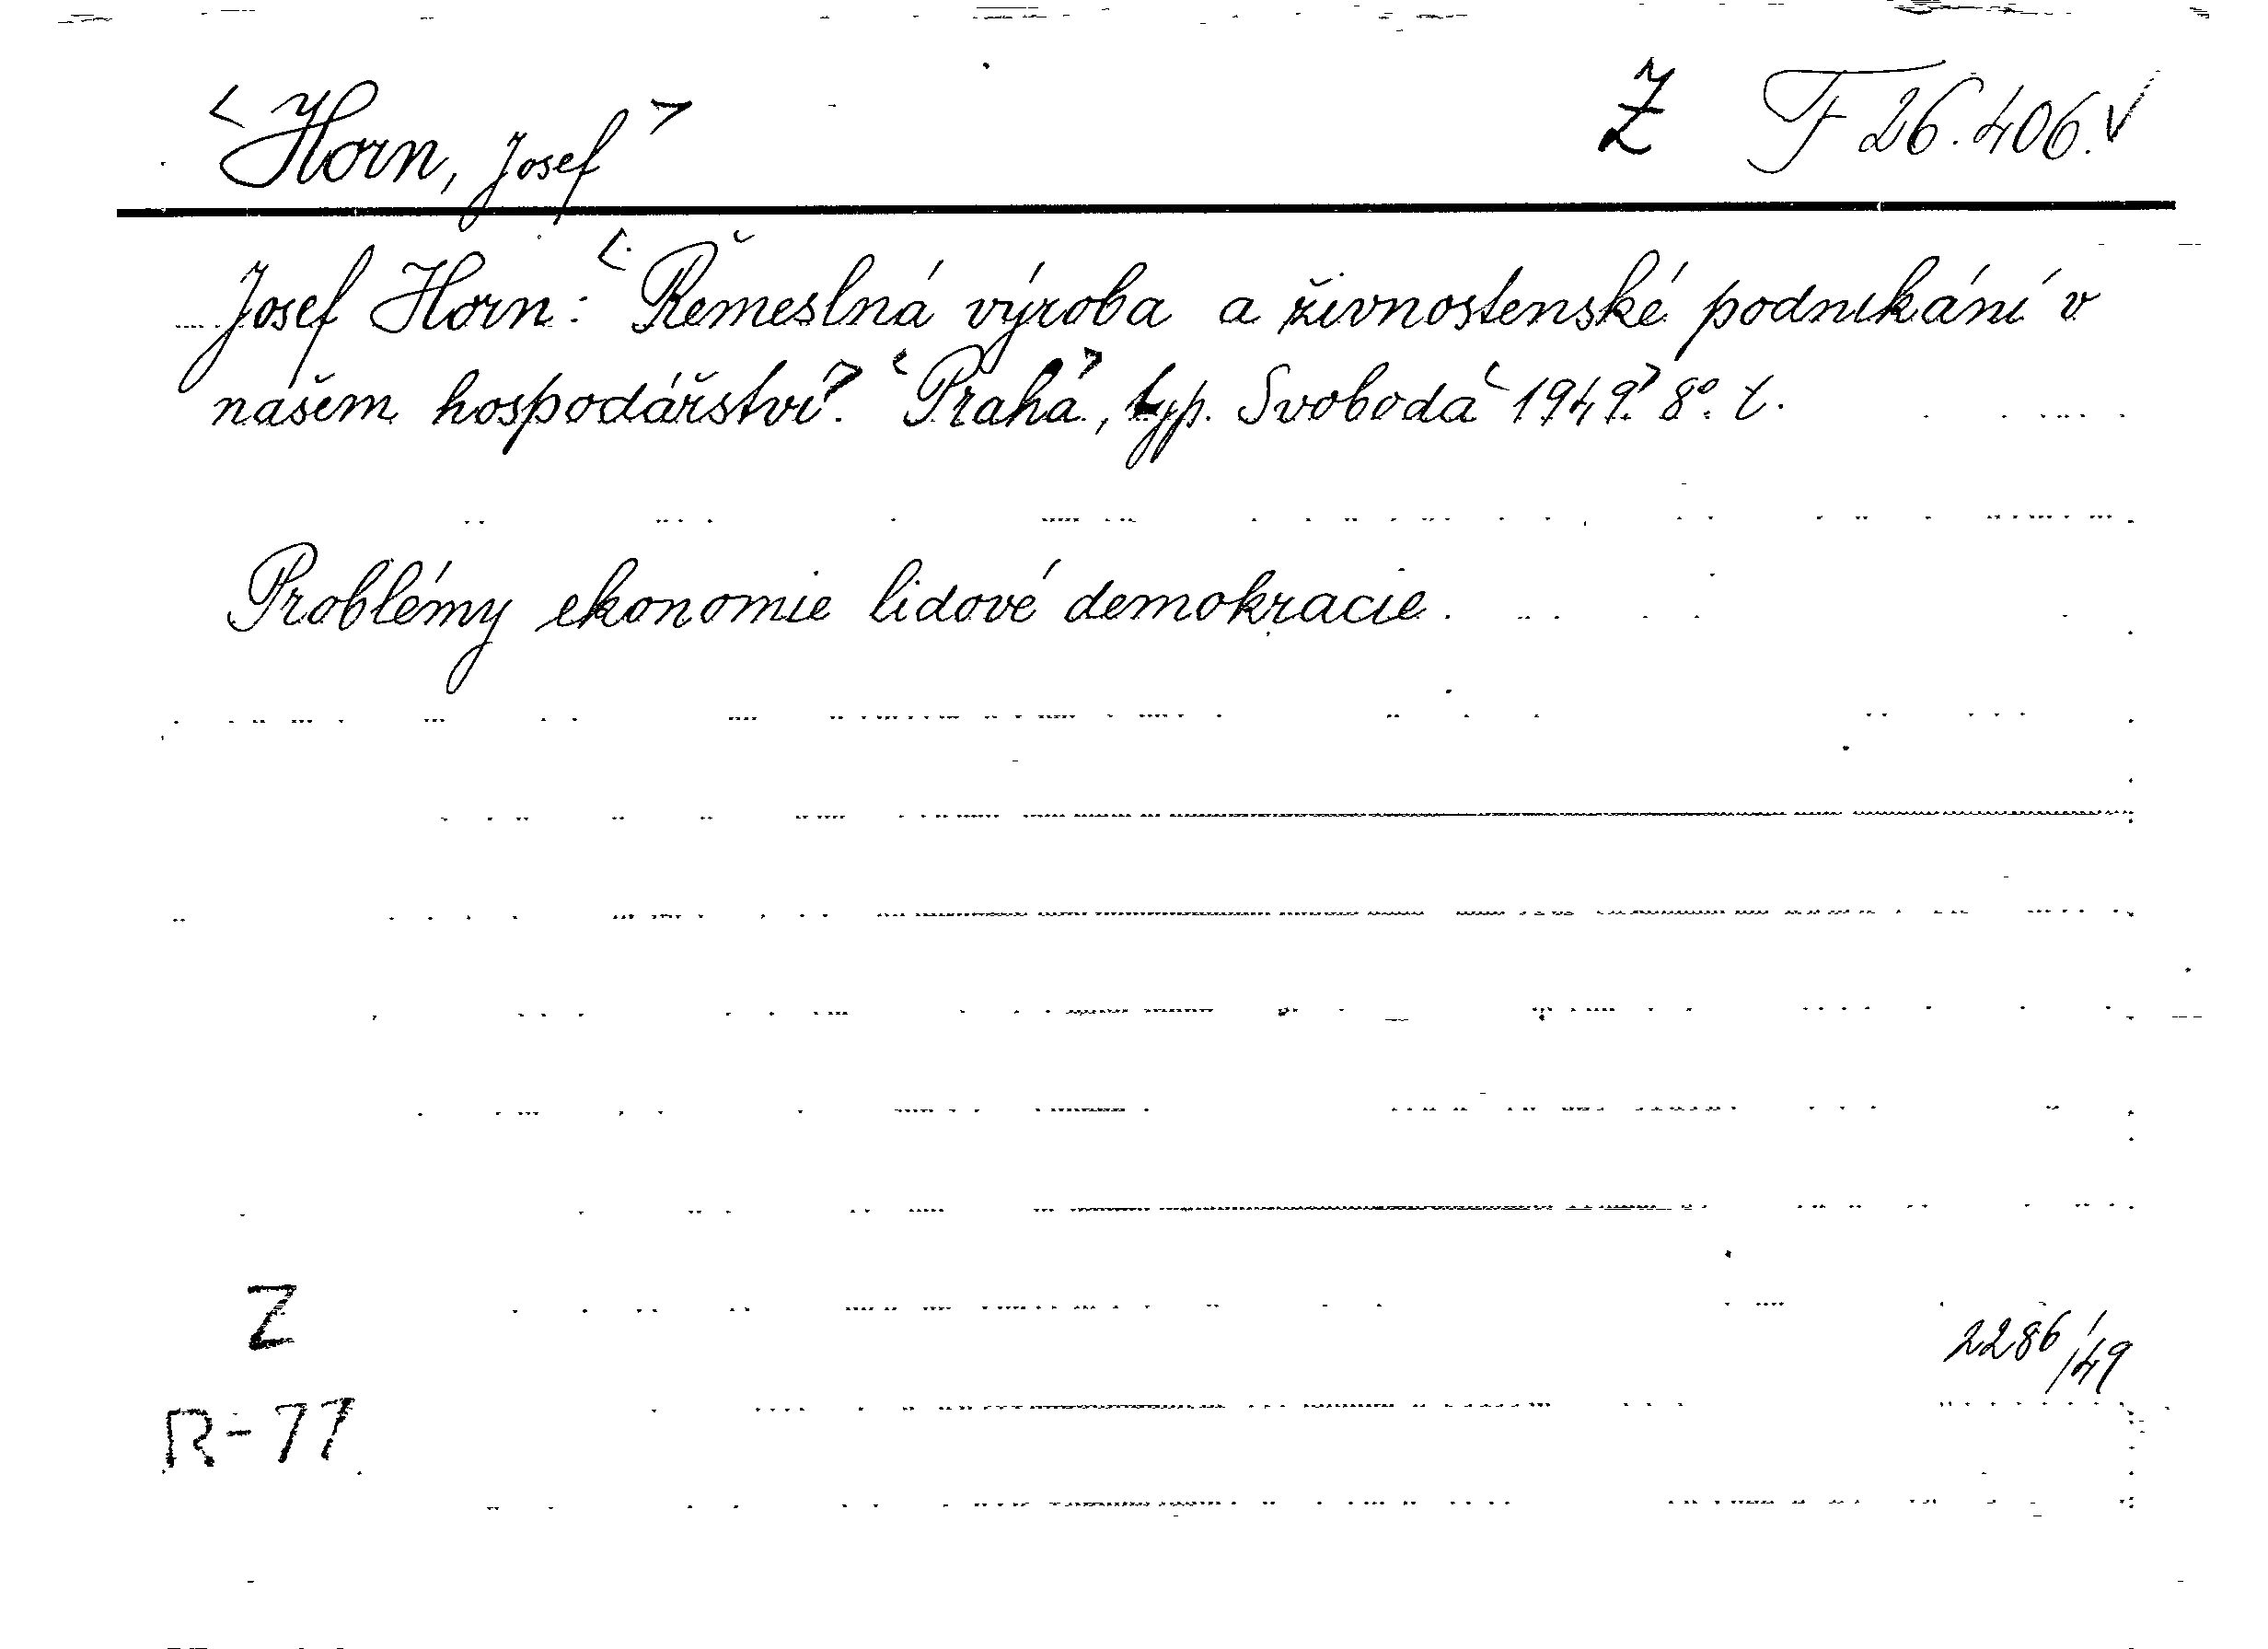 <Horn, Josef> Ž F 26.406.√
Josef Horn: <Řemeslná výroba a živnostenské podnikání v
našem hospodářství>. <Praha>, typ. Svoboda <1949>. 8°. t.
Problémy ekonomie lidové demokracie.
Z
2286/49
R-77